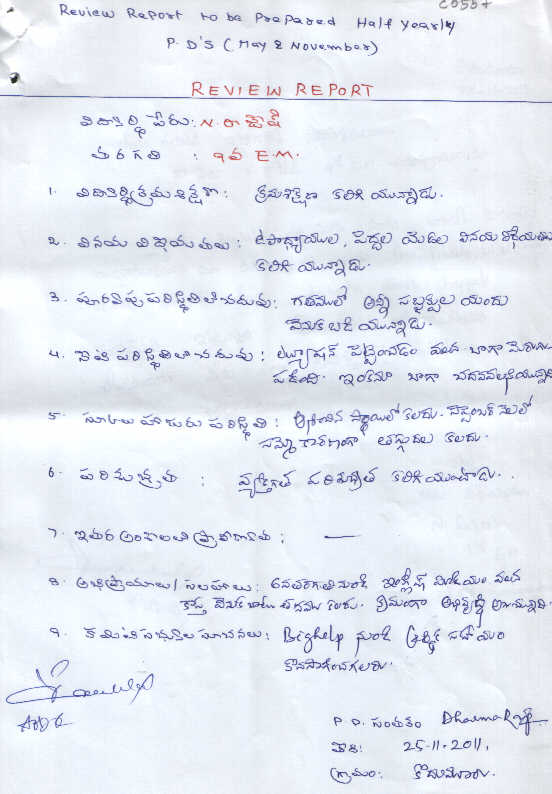 Review Report to be Prepared Half Yearly
P.D'S (May & November)
REVIEW REPORT
విద్యార్థి పేరు: N. రాజేష్
తరగతి : 9వ E.M.
1. విద్యార్థి క్రమశిక్షణ: క్రమశిక్షణ కలిగి యున్నాడు.
2. వినయ విధేయతలు: ఉపాధ్యాయుల, పెద్దల యెడల వినయ విధేయతలు
కలిగి యున్నాడు.
3. పూర్వపు పరిస్థితి లో చదువు: గతములో అన్ని సబ్జక్టుల యందు
వెనుకబడి యున్నాడు.
4. నేటి పరిస్థితిలో చదువు: ట్యూషన్ పెట్టించడం వలన బాగా మెరుగు
పడింది. ఇంకనూ బాగా చదవవలసియున్నది
5. హాజరు పరిస్థితి: ఆశించిన స్థాయిలో కలదు. సెప్టెంబర్ నెలలో
సమ్మె కారణంగా తగ్గుదల కలదు.
6. పరిశుభ్రత : వ్యక్తిగత పరిశుభ్రత కలిగియుంటాడు.
7. ఇతర అంశాలలో ప్రావీణ్యత: —
8. అభిప్రాయాలు/సలహాలు: 6వ తరగతి నుండి ఇంగ్లీష్ మీడియం వలన
కాస్త వెనుకబాటు తనము కలదు. క్రమంగా అభివృద్ధి
9. కమిటి సభ్యుల సూచనలు: Bighelp నుండి ఆర్థిక సహాయం
కొనసాగించగలరు.
P.D. సంతకం
తేది: 25-11-2011.
గ్రామం: